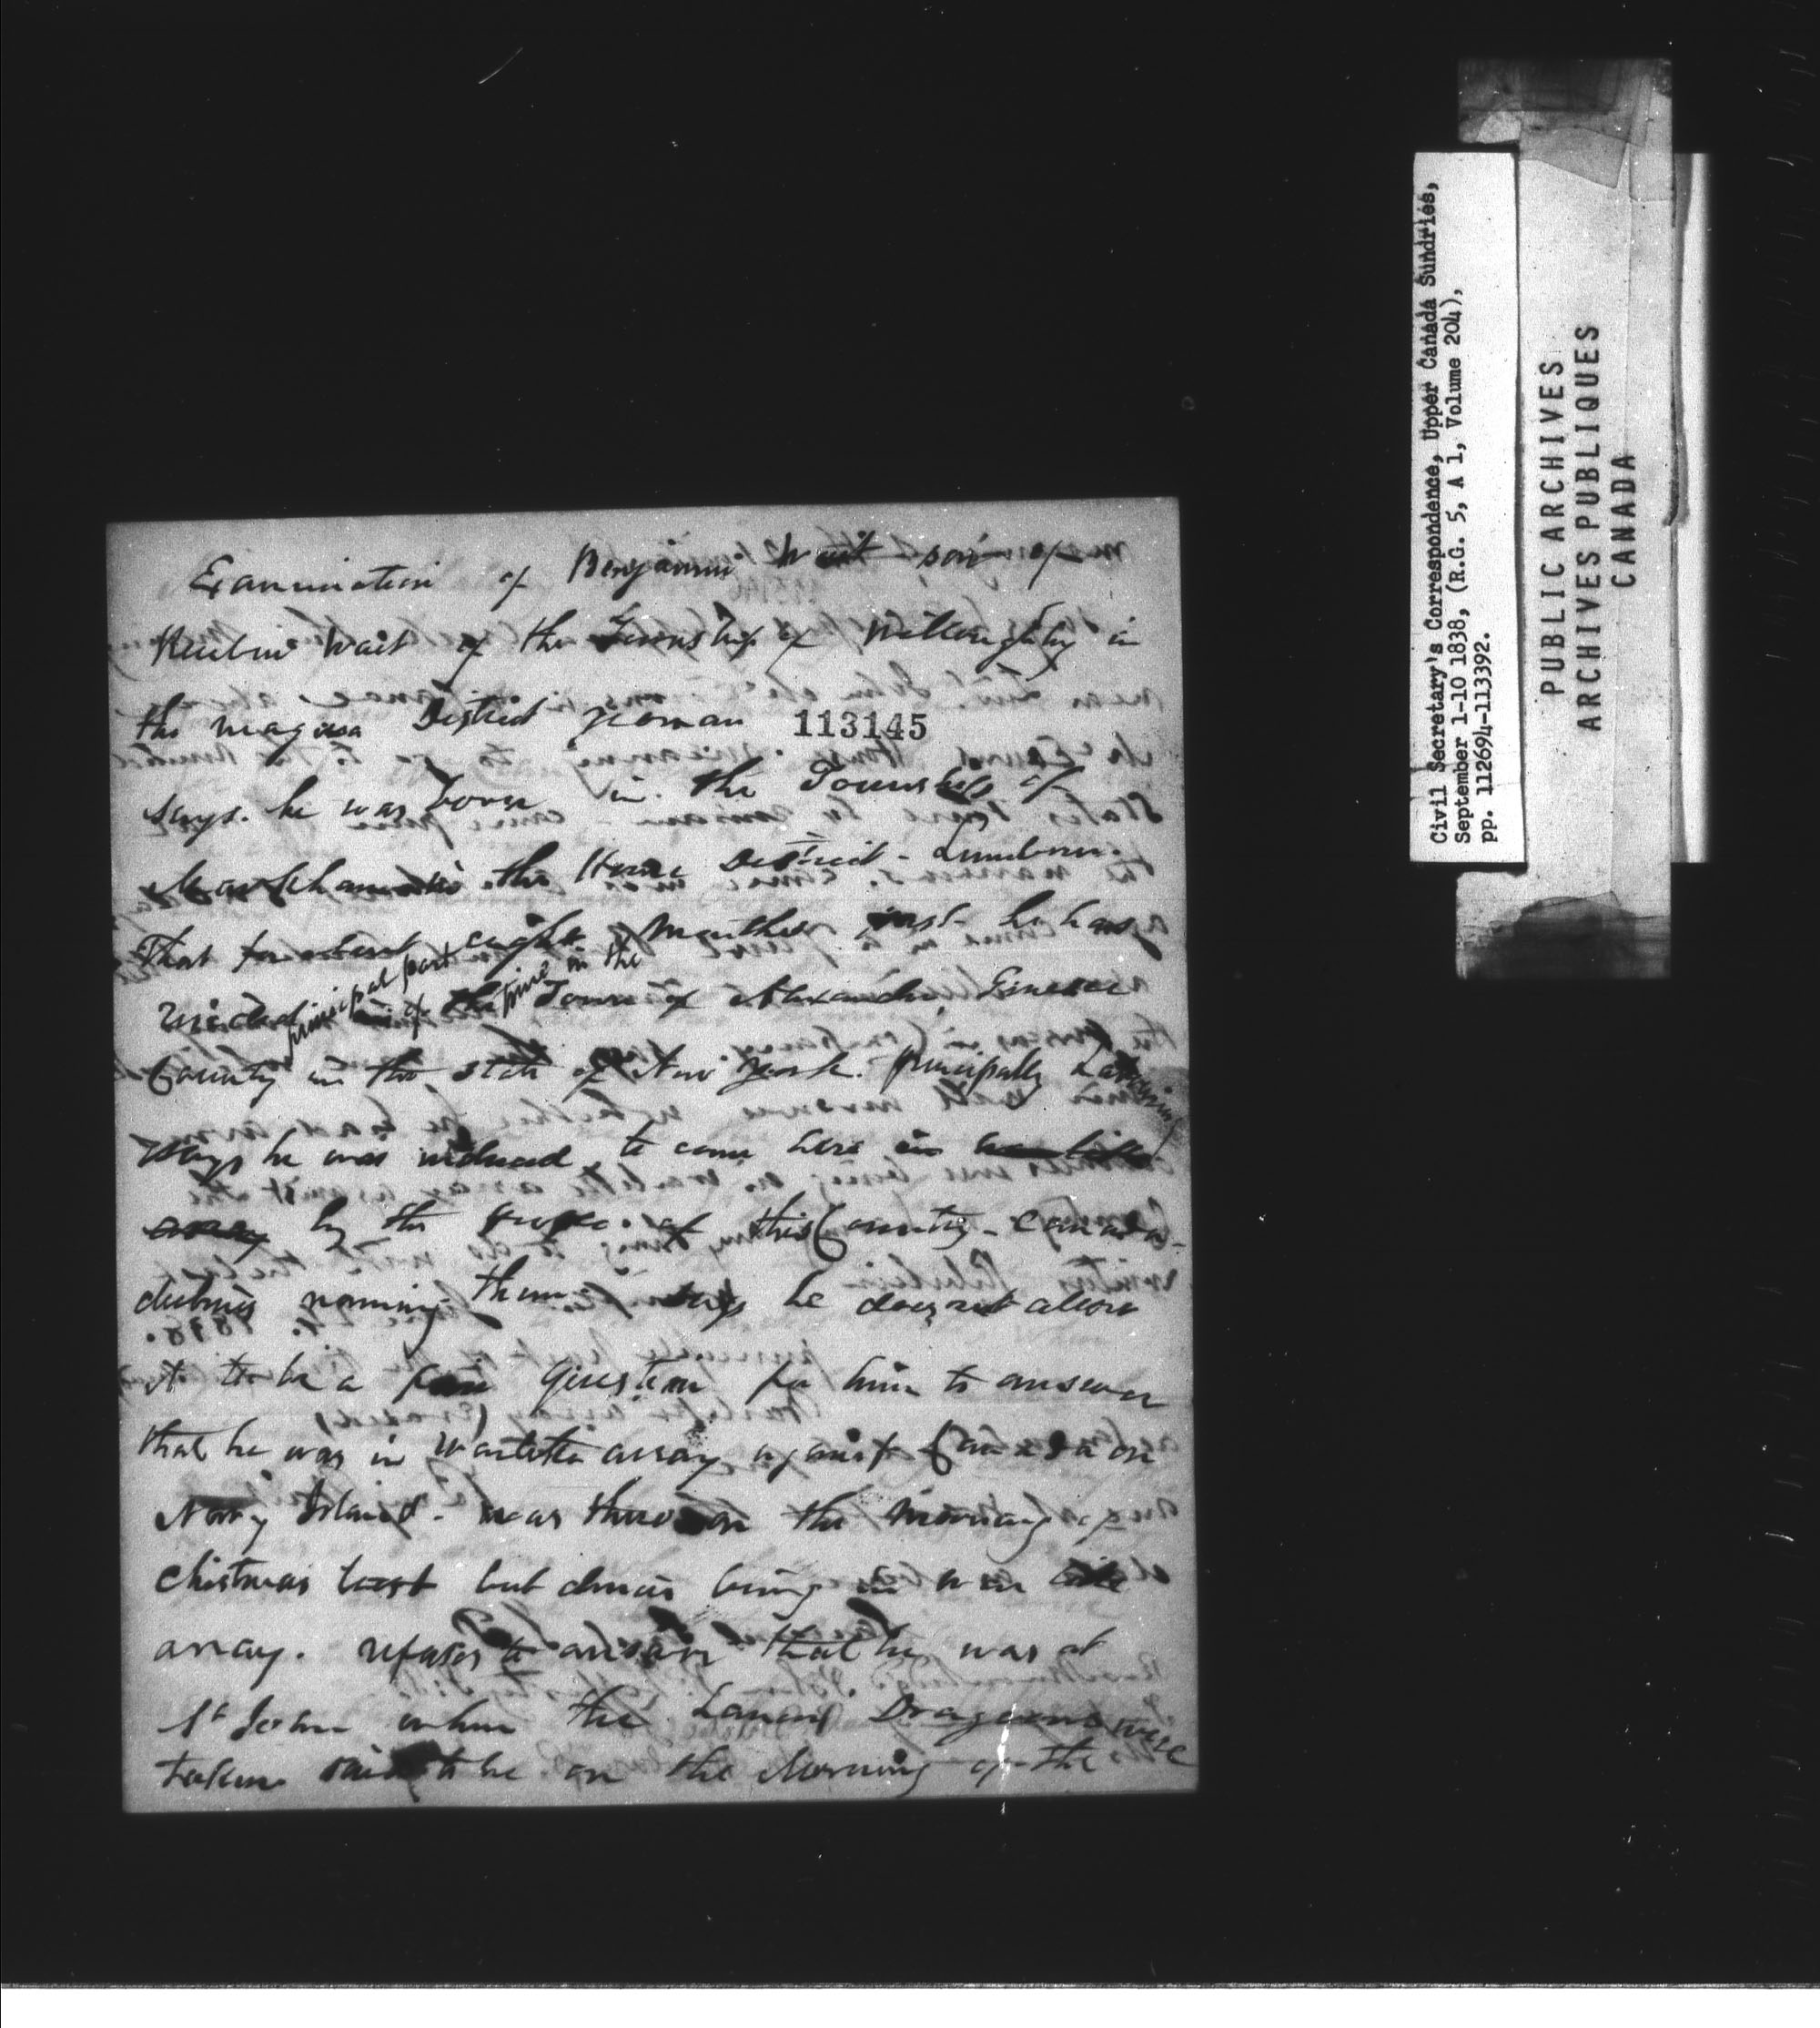 Examination of Benjamin Wait son of
Reubin Wait of the Township of Willoughby in
the Niagara District Yeoman 113145
says. he was born in the Township of
Markham in the Home District -
That for about eight Months past he has
principal part of the time in the
resided Town of Alexander, Genesee
County in the State of New York. principally
Says he was induced to come here in
array by the people of this County - Canada -
declines naming them says he does not allow
it to be a fair Question for him to answer
that he was in Warlike array against Canada on
Navy Island - was there on the Morning of
Christmas last but denies being in war like
array. refuses to answer that he was at
St Johns when the Lancers Dragoons were
taken said to be on the Morning of the
Civil Secretary's Correspondence, Upper Canada Sundries,
September 1-10 1838, (R.G. 5, A 1, Volume 204),
pp. 112694-113392.
PUBLIC ARCHIVES
ARCHIVES PUBLIQUES
CANADA